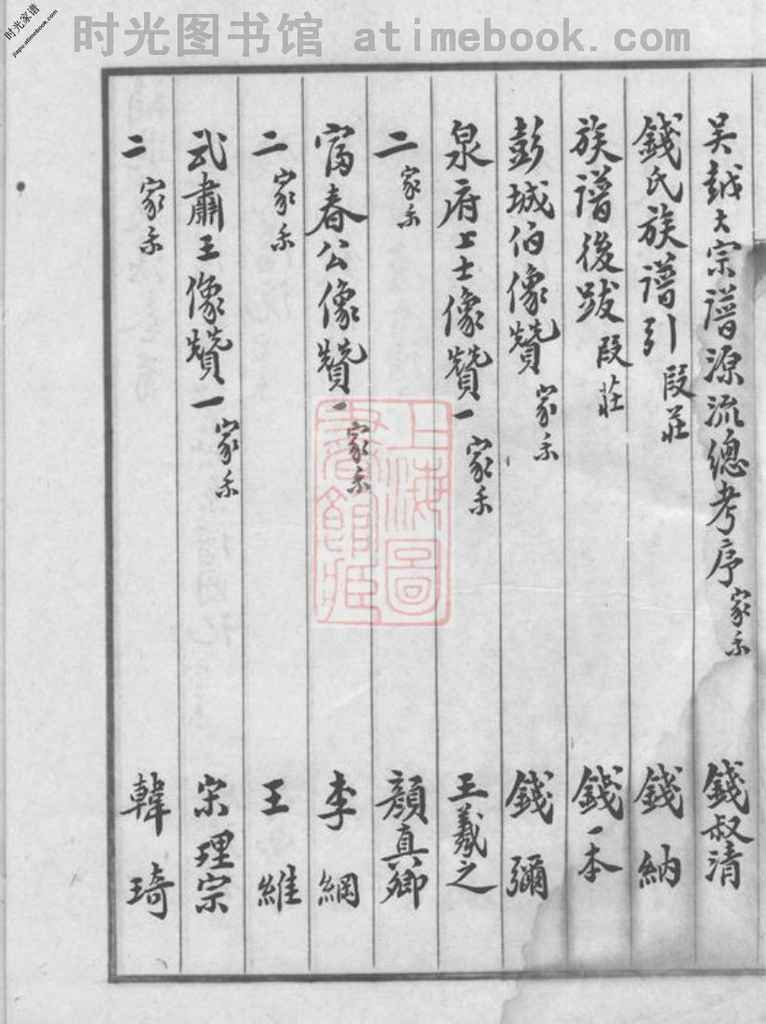 时光图书馆 atimebook.com
时光家谱
jiapu.atimebook.com
吴越大宗譜源流總考序 家乘 錢叔清
錢氏族譜引 段莊 錢納
族譜後跋 段莊 錢一本
彭城伯像贊 家乘 錢彌
泉府上士像贊一 家乘 王羲之
二 家乘 顏真卿
富春公像贊一 家乘 李綱
二 家乘 王維
武肅王像贊一 家乘 宋理宗
二 家乘 韓琦
上海圖書館藏